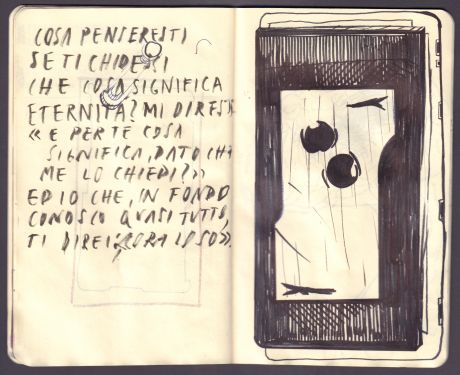 COSA PENSERESTI
SE TI CHIDESSI
CHE COSA SIGNIFICA
ETERNITÀ? MI DIRESTI
« E PER TE COSA
SIGNIFICA, DATO CHE
ME LO CHIEDI?»
ED IO CHE, IN FONDO
CONOSCO QUASI TUTTO,
TI DIREI «ORA LO SO».